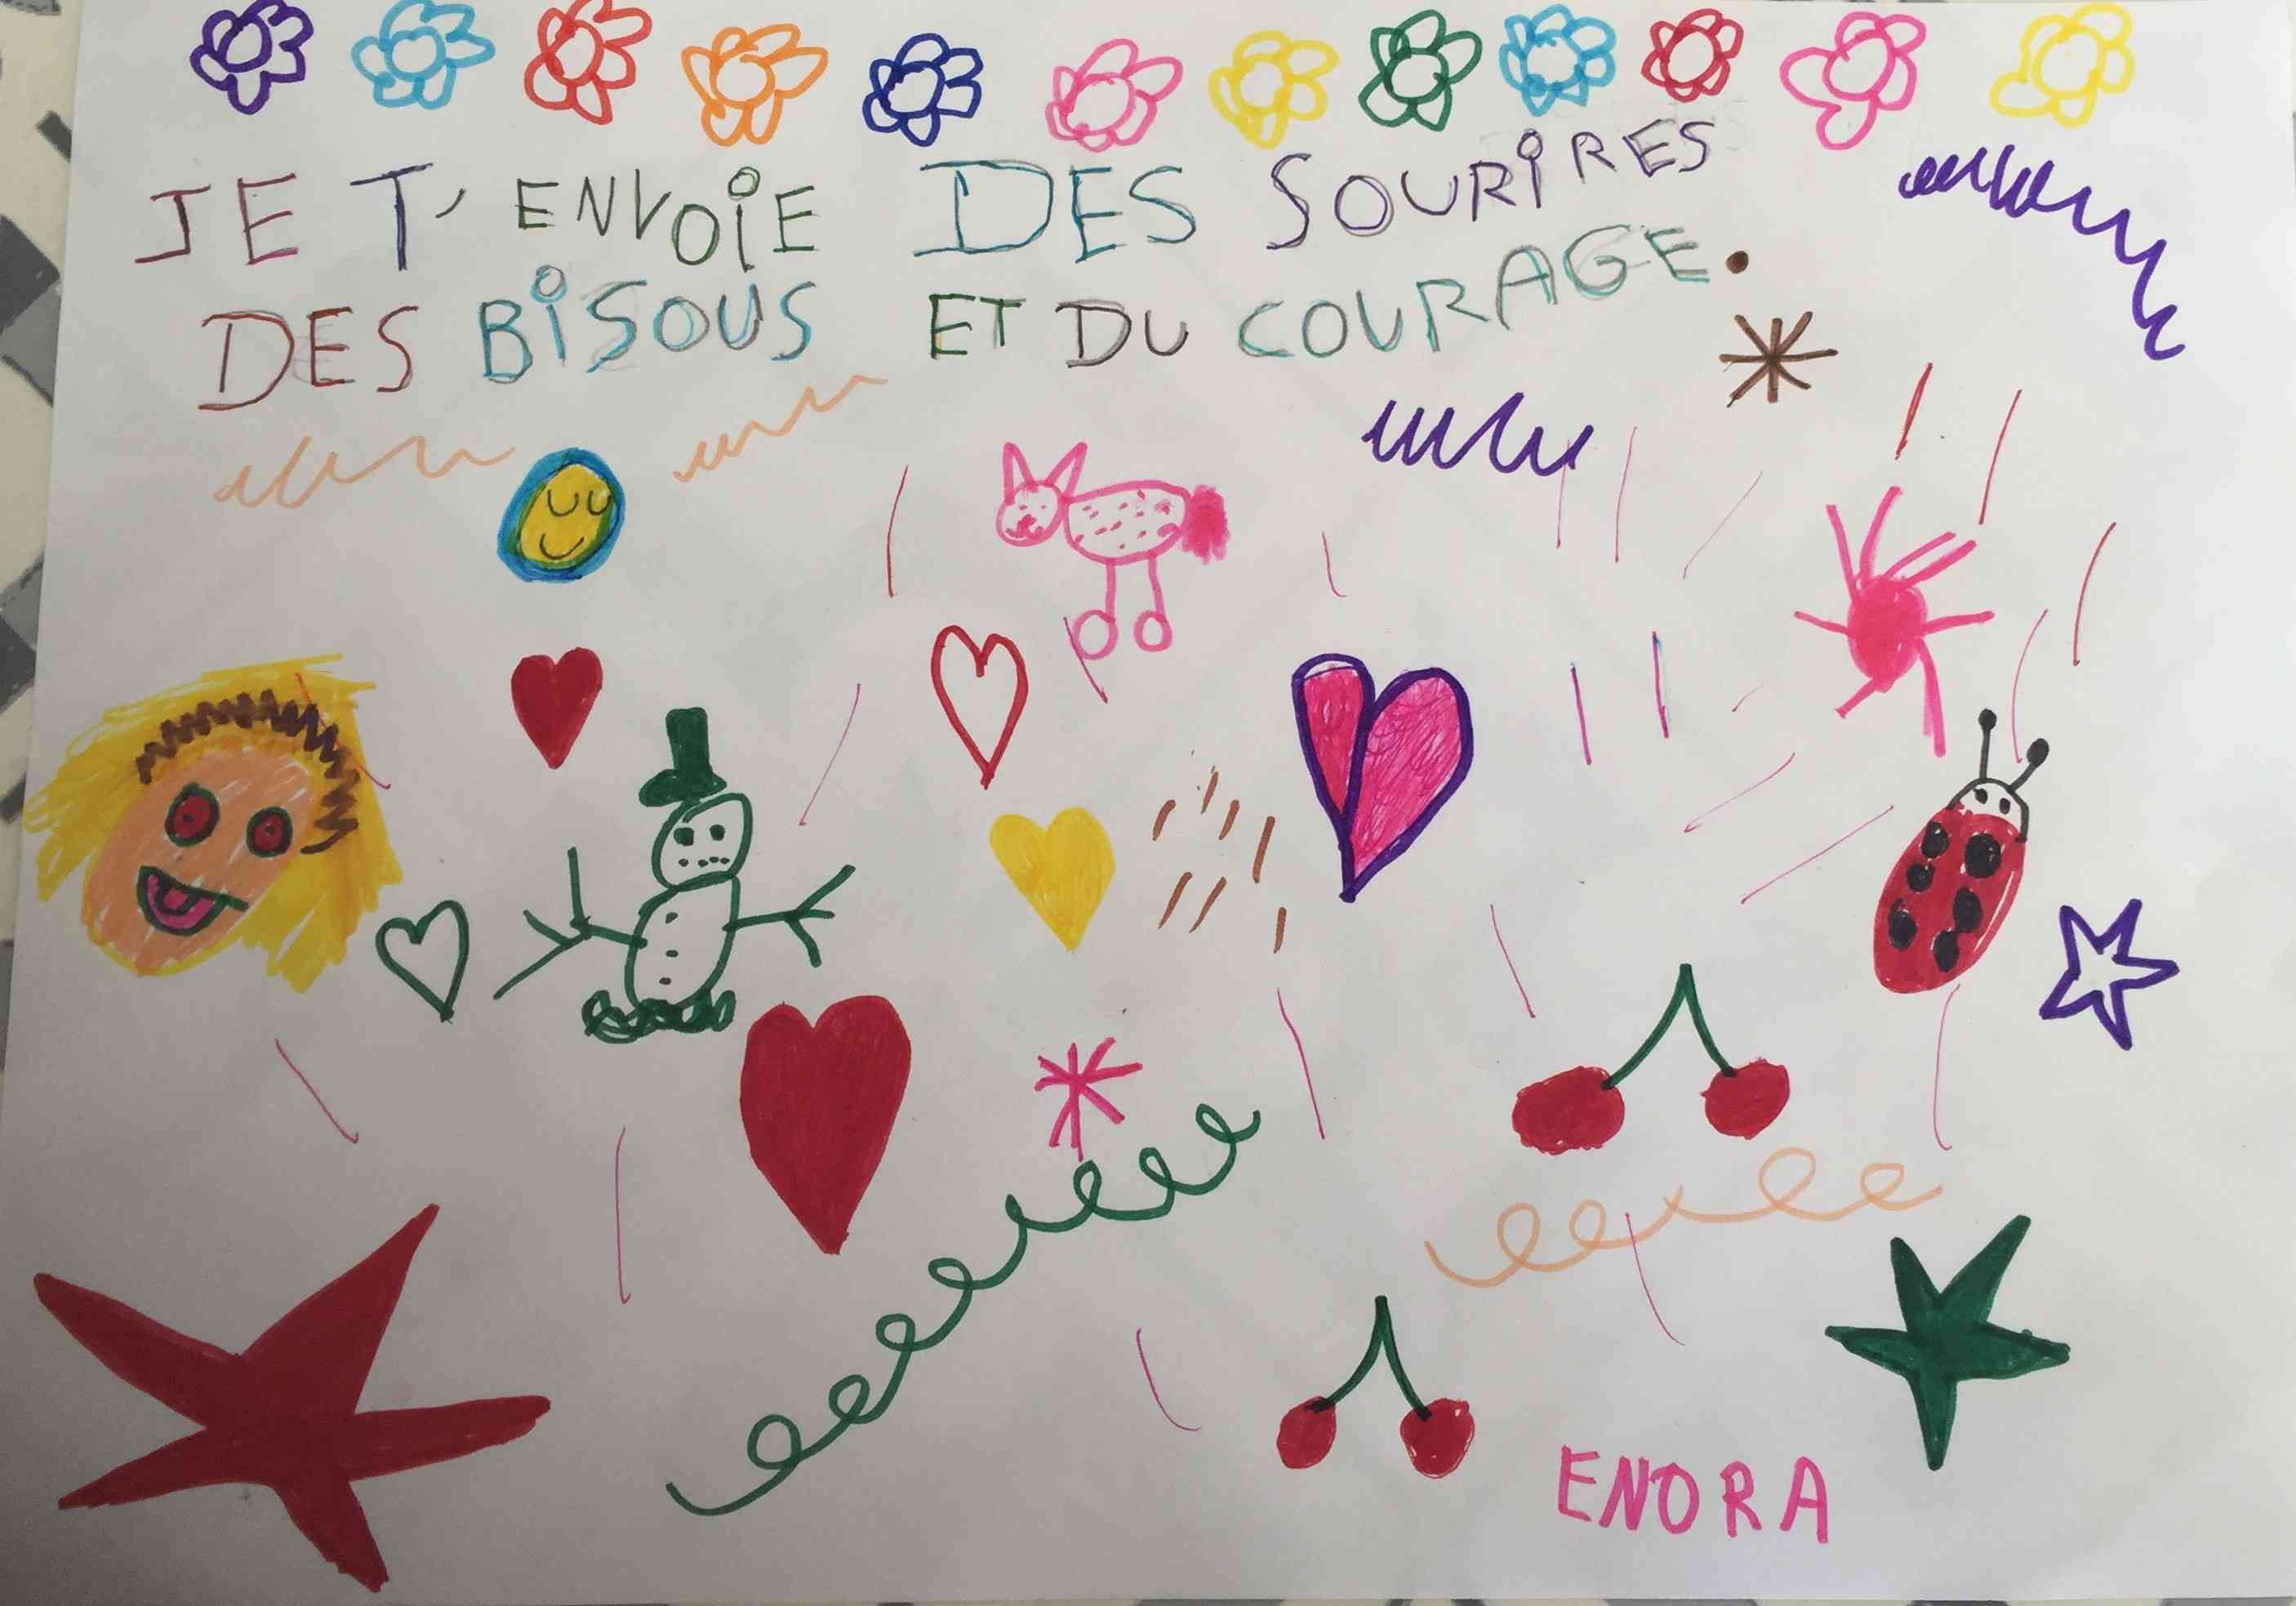 JE T' ENVOIE DES SOURIRES
DES BISOUS ET DU COURAGE.
ENORA